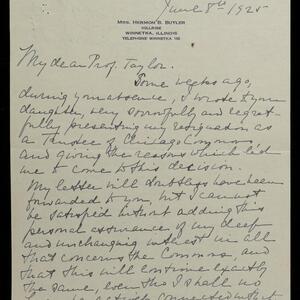 June 8th 1925
MRS. HERMON B. BUTLER
HILLRISE
WINNETKA, ILLINOIS
TELEPHONE WINNETKA 116
My dear Prof. Taylor:
Some weeks ago,
during your absence, I wrote to your
daughter, very sorrowfully and regret-
fully presenting my resignation as
a Trustee of Chicago Commons
and giving the reasons which led
me to come to this decision.
My letter will doubtless have been
forwarded to you, but I cannot
be satisfied without adding this
personal assurance of my deep
and unchanging interest in all
that concerns the Commons, and
that this will continue exactly
the same, even tho I shall no